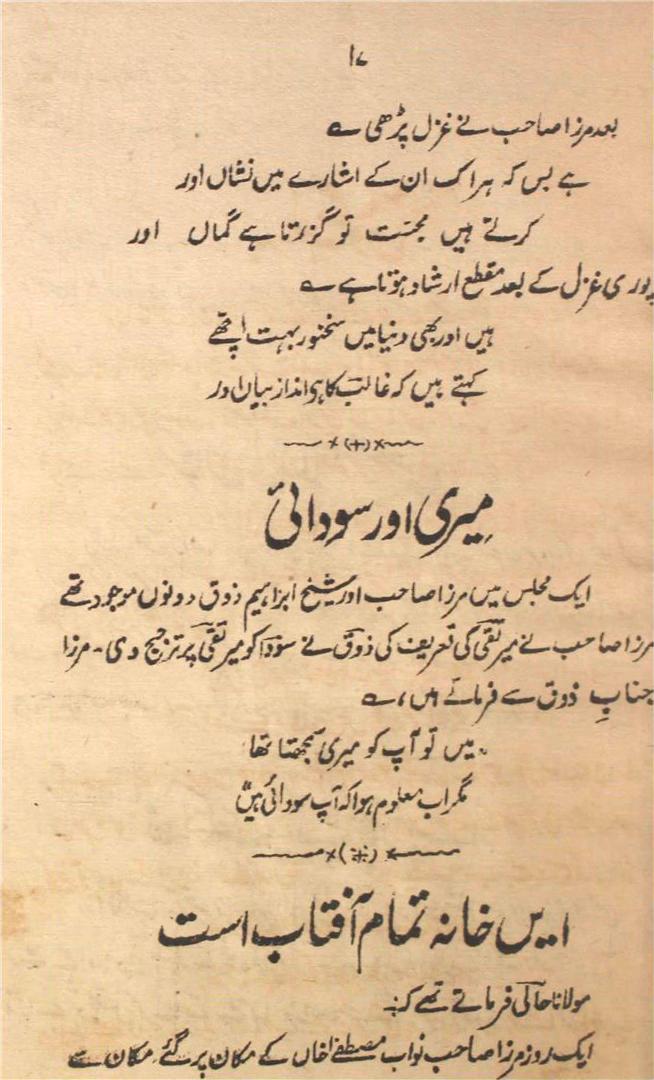 ۱۷
بعد مرزا صاحب نے غزل پڑھی ؎
ہے بس کہ ہر اک ان کے اشارے میں نشاں اور
کرتے ہیں محبت تو گزرتا ہے گماں اور
پوری غزل کے بعد مقطع ارشاد ہوتا ہے ؎
ہیں اور بھی دنیا میں سخنور بہت اچھے
کہتے ہیں کہ غالبؔ کا ہے انداز بیاں اور
میری اور سودائی
ایک مجلس میں مرزا صاحب اور شیخ ابراہیم ذوق دونوں موجود تھے
مرزا صاحب نے میر تقیؔ کی تعریف کی ذوقؔ نے سوداؔ کو میر تقیؔ پر ترجیح دی۔ مرزا
جنابِ ذوق سے فرماتے ہیں، ؎
"میں تو آپ کو میری سمجھتا تھا
مگر اب معلوم ہوا کہ آپ سودائی ہیں"
ایں خانہ تمام آفتاب است
مولانا حالیؔ فرماتے تھے کہ:۔
ایک روز مرزا صاحب نواب مصطفےٰ خاں کے مکان پر گئے، مکان سے